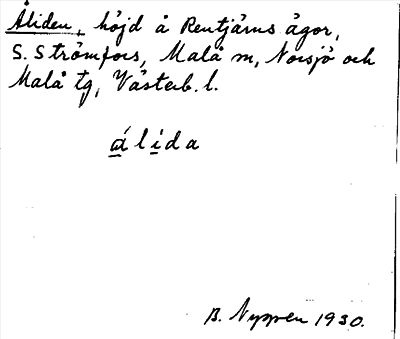 Åliden, höjd å Rentjärns ägor,
S. Strömfors, Malå m, Norsjö och
Malå tg, Västerb. l.
álida
B. Nyssen 1930.